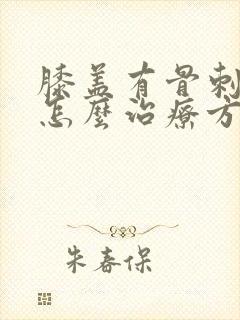 膝盖有骨刺
怎麽治療方
朱春保